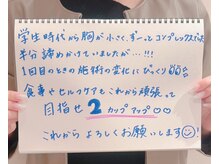 学生時代から胸が小さく、ずーっとコンプレックスで
半分諦めかけていましたが…!!!
1回目のときの施術の変化にびっくり
食事やセルフケアもこれから頑張って
目指せ2カップアップ♡♡
これからよろしくお願いします